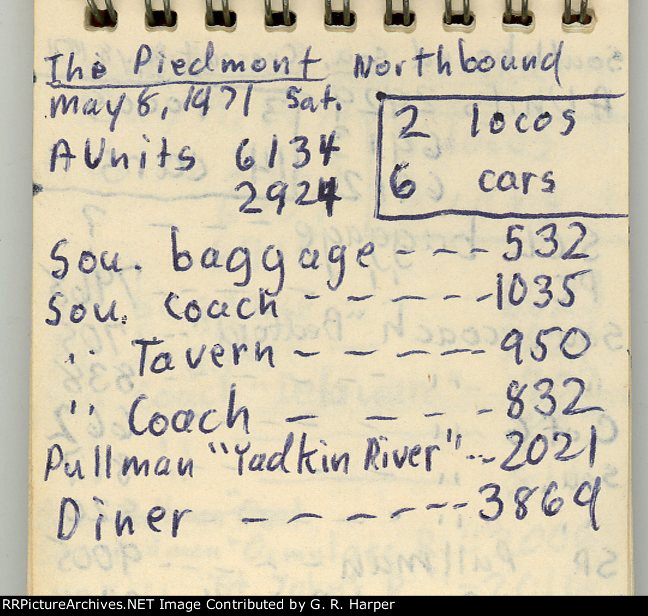 The Piedmont Northbound
May 8, 1971 Sat.
2 locos
A Units 6134
2924
6 cars
Sou. baggage --- 532
Sou. Coach ------ 1035
" Tavern ------ 950
" Coach - - - - 832
Pullman "Yadkin River" -- 2021
Diner ------- 3869
RRPictureArchives.NET Image Contributed by G. R. Harper